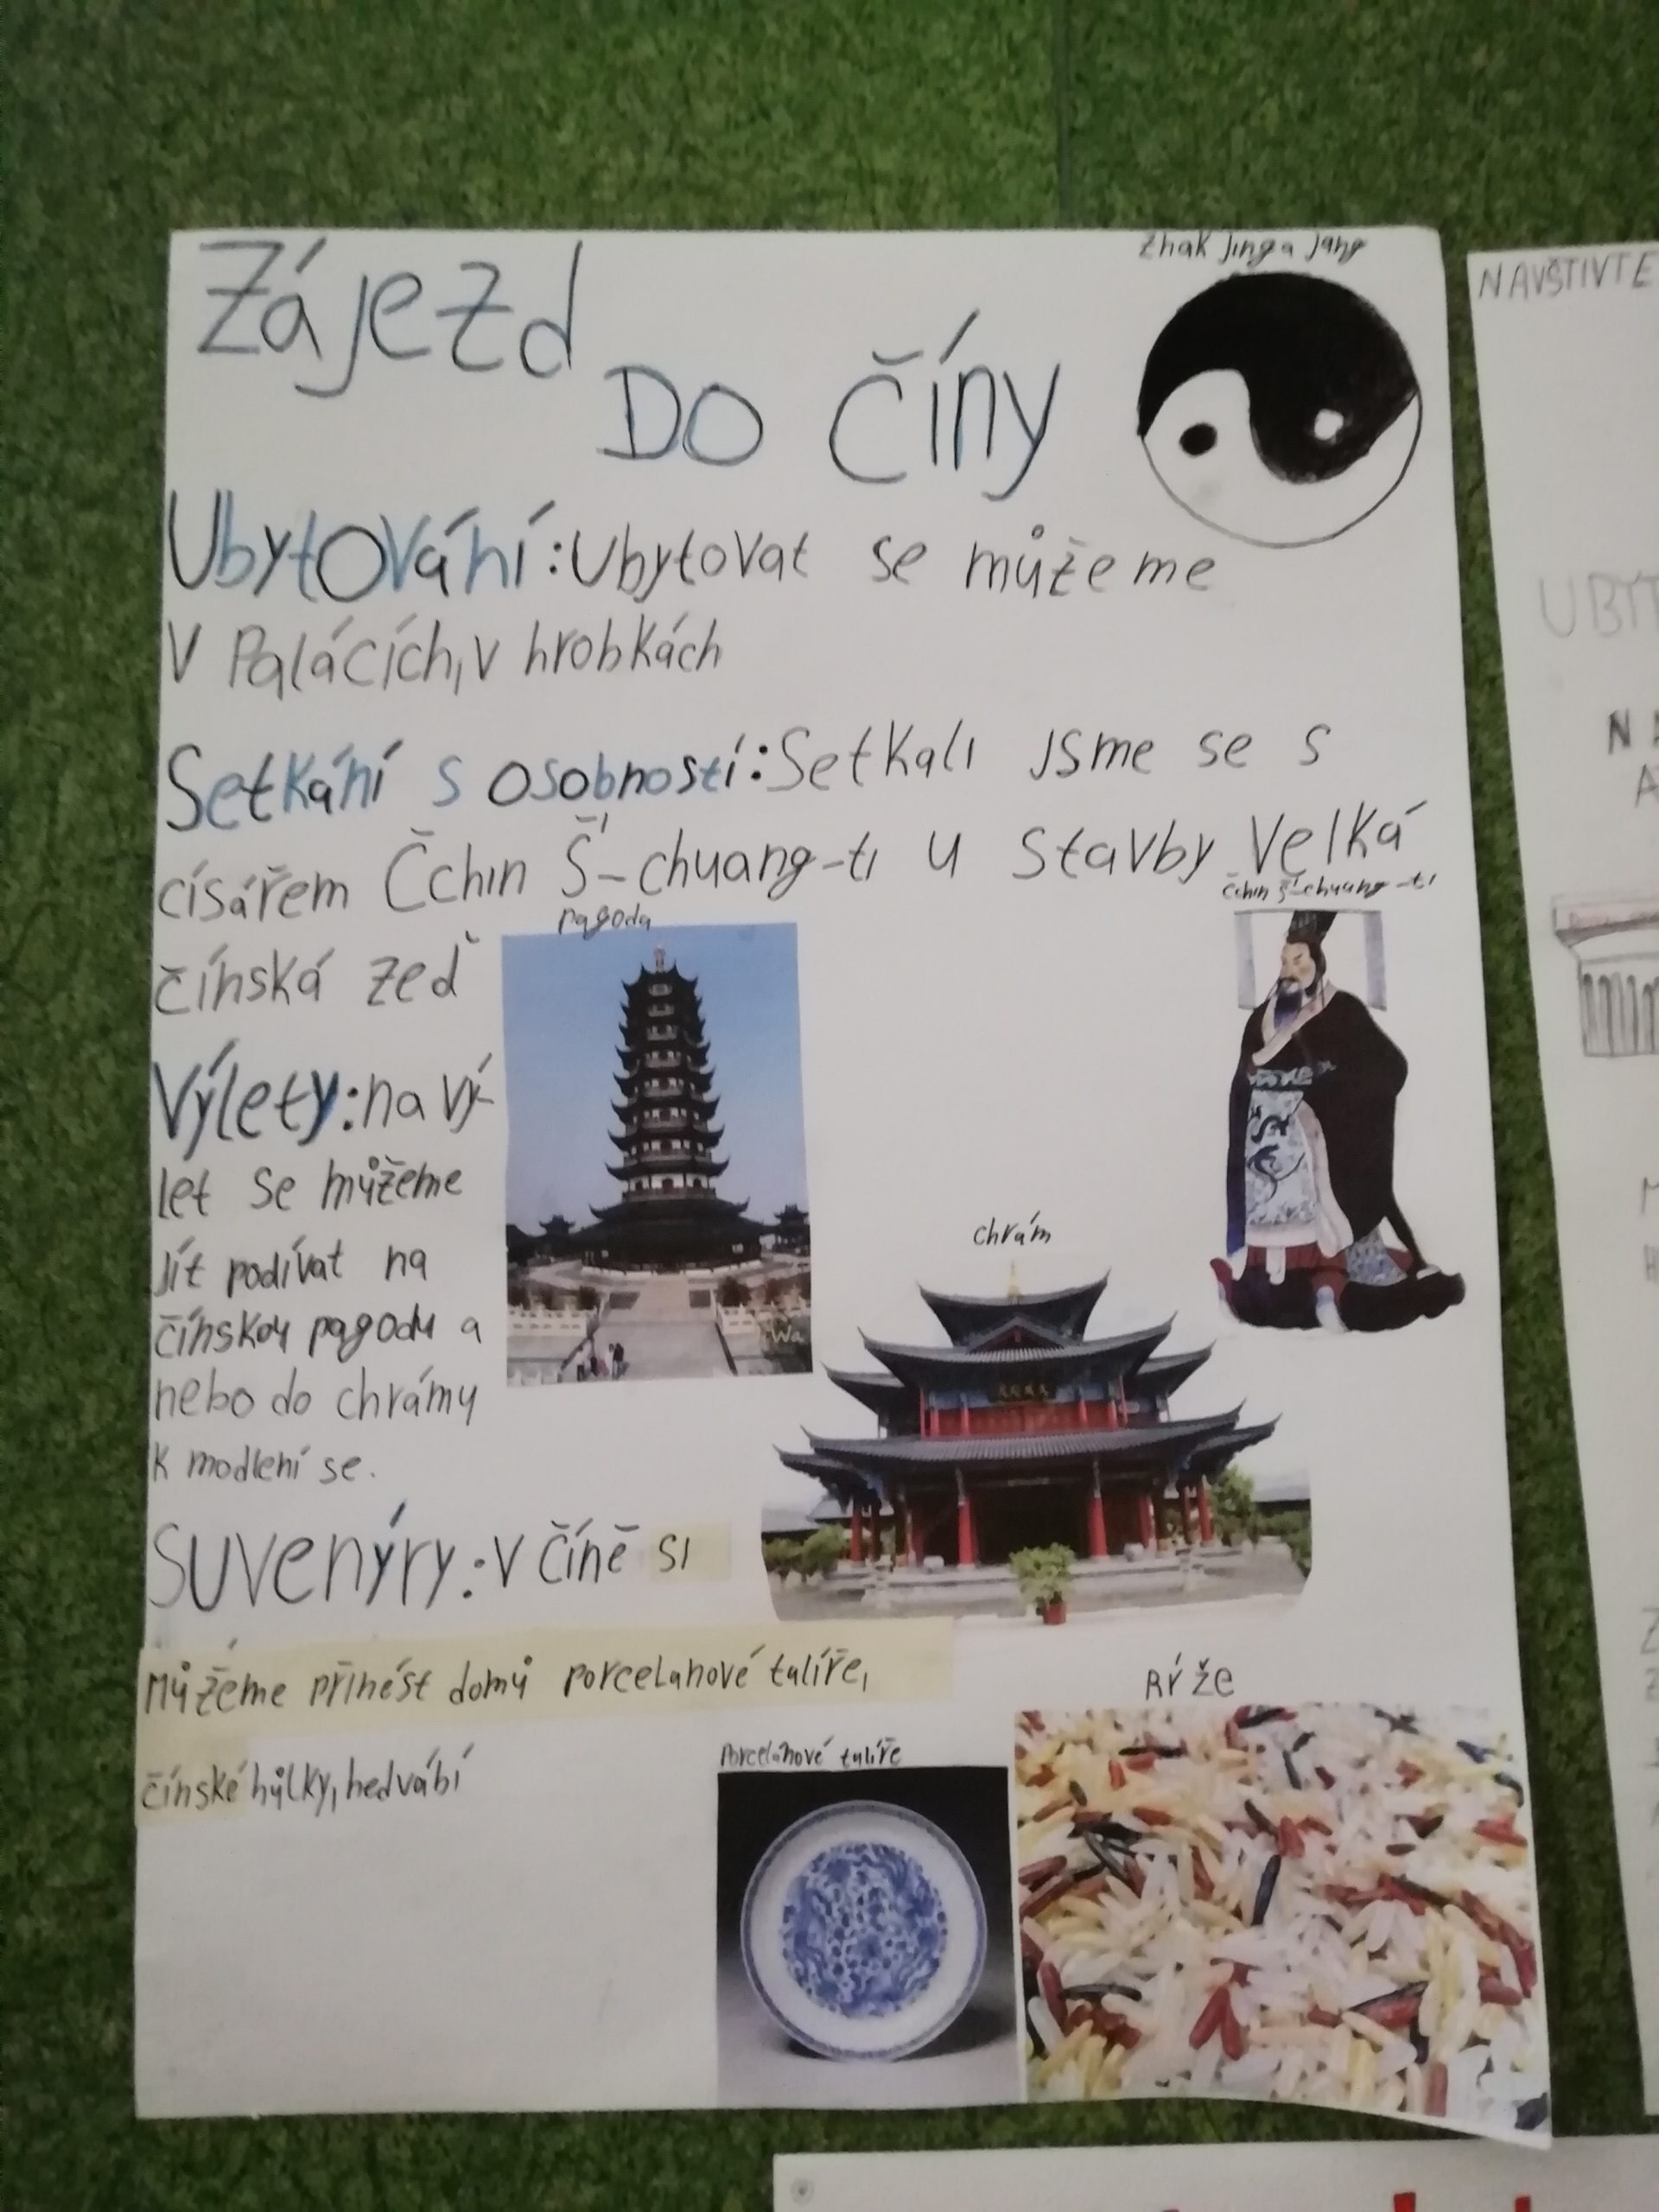 znak jing a jang
Zájezd
DO číny
Ubytování: Ubytovat se můžeme
v Palácích, v hrobkách
Setkání s osobností: Setkali jsme se s
císářem Čchin Š'-chuang-ti u stavby Velká
čínská zeď
čchin š'-chuang-ti
pagoda
Výlety: na vý-
let se můžeme
jít podívat na
čínskou pagodu a
nebo do chrámy
k modlení se.
chrám
Wa
Suvenýry: v číně si
můžeme přinést domů porcelanové talíře,
čínské hůlky, hedvábí
Porcelánové talíře
Rýže
NAVŠTIVTE
UBYT
N
A